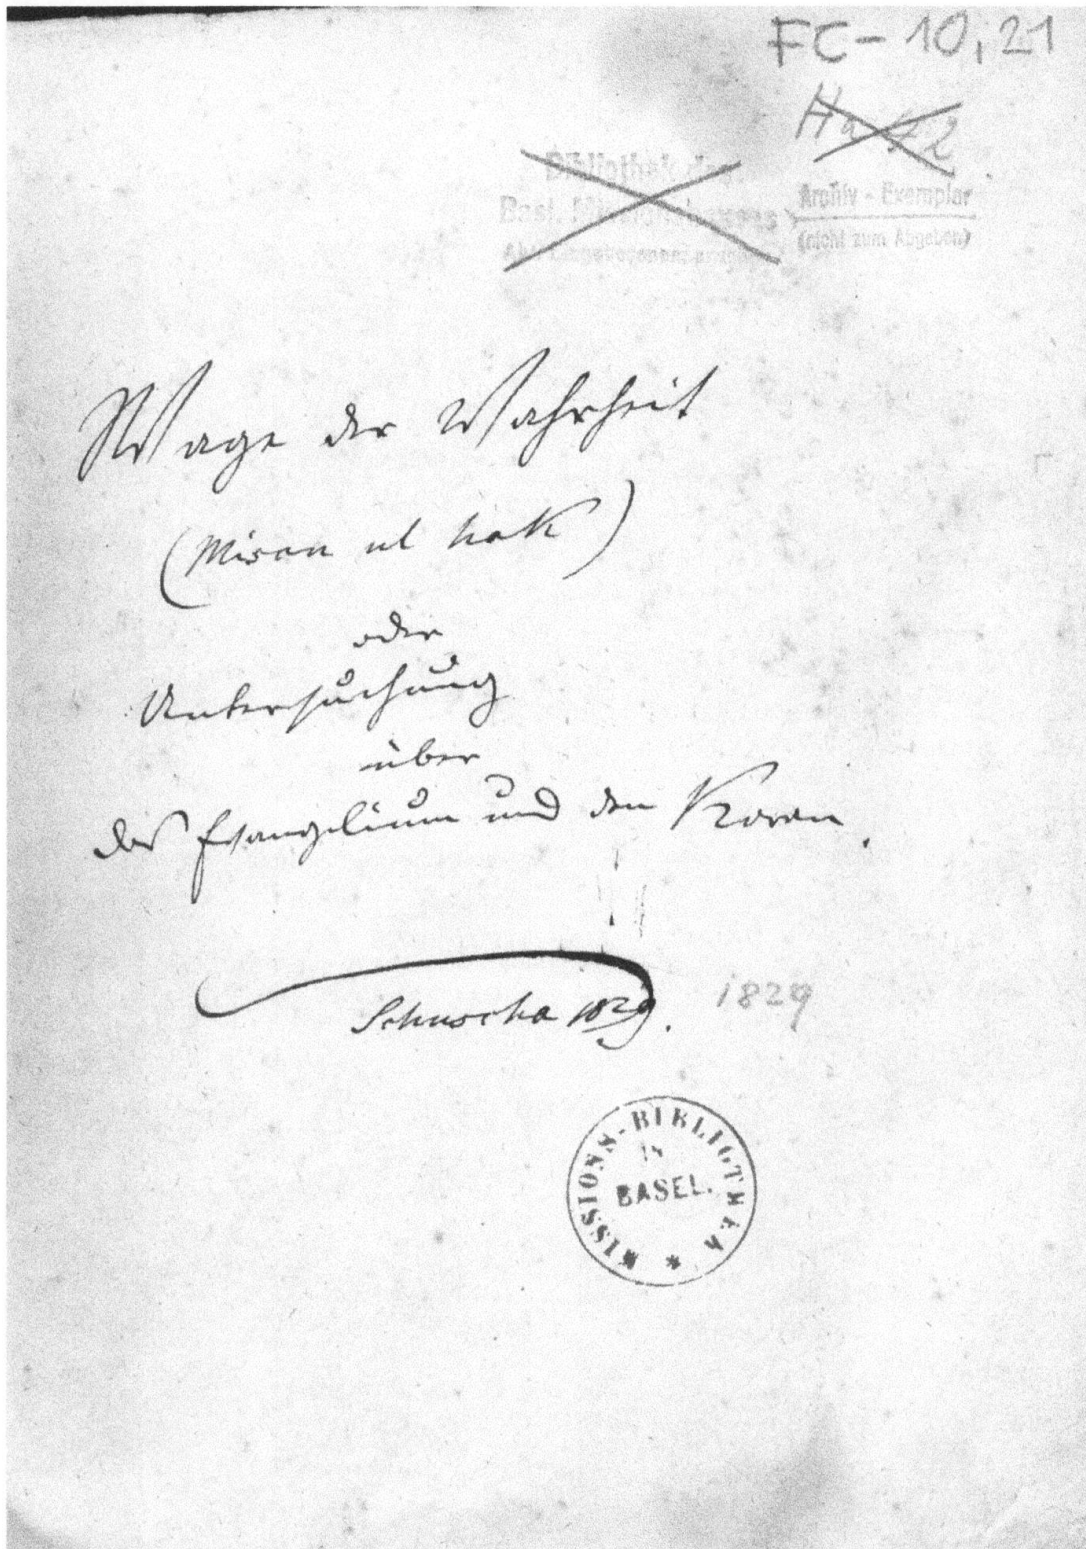 FC-10,21
Ha
Bibliothek der
Basl. Missionshauses
Archiv - Exemplar
(nicht zum Abgeben)
Wage der Wahrheit
(Misan ul hak)
oder
Untersuchung
über
das Evangelium und den Koran.
Schuscha 1829. 1829
MISSIONS-BIBLIOTHEK
IN
BASEL.